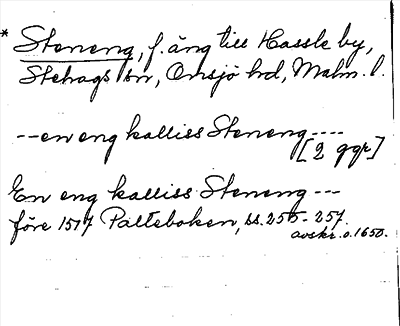 * Steneng, f. äng till Hassle by,
Stehags sn, Onsjö hd, Malm. l.
--en eng kalliss Steneng----
[2 ggr]
En eng kalliss Steneng ---
före 1517 Palteboken, ss. 255-257.
avskr. o. 1650.